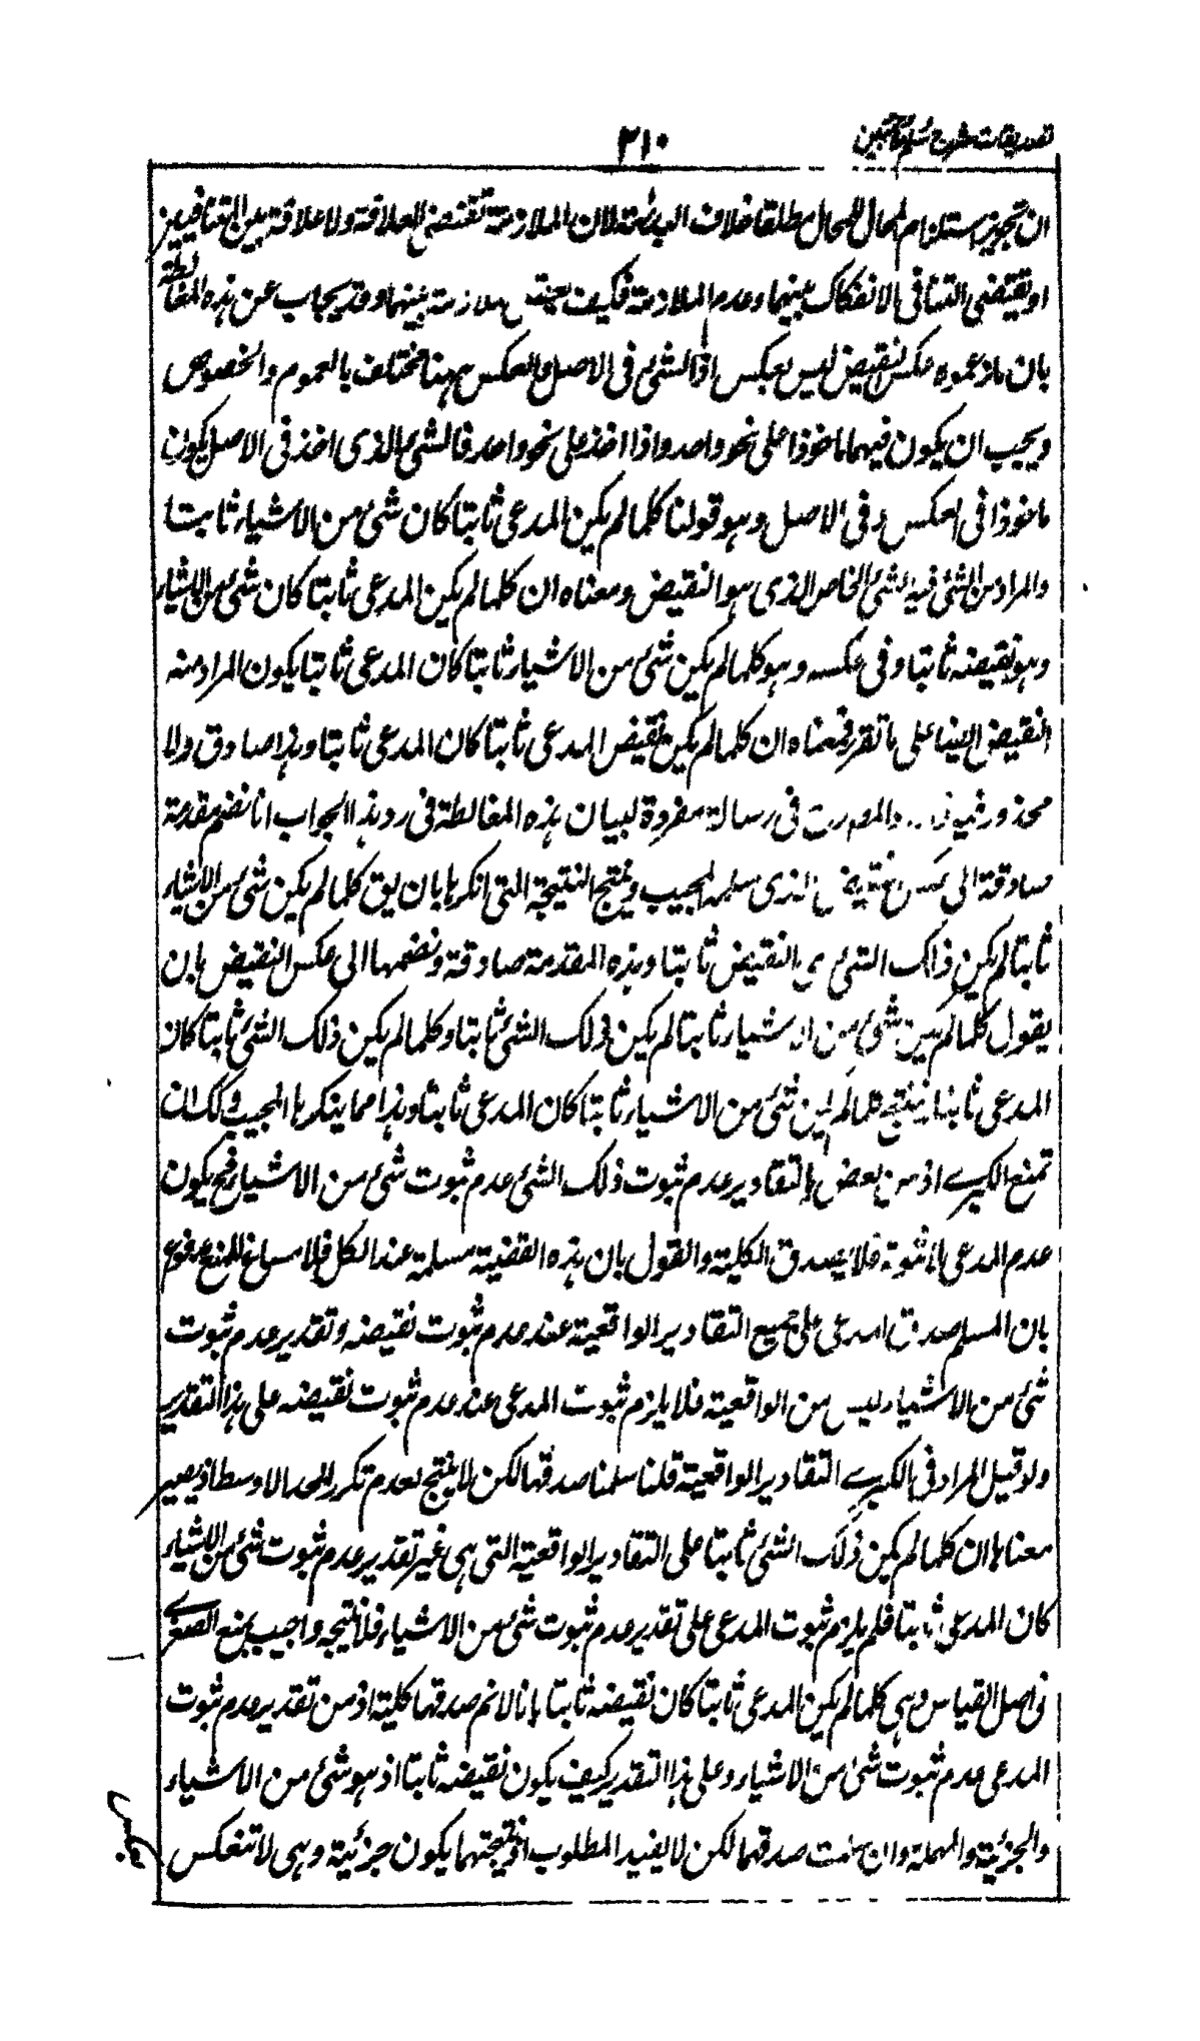 تصديقات شرح سلم ملا مبين
٣١٠
ان تجويز استلزام المحال للمحال مطلقا خلاف البداهة لان الملازمة تقتضي العلاقة ولا علاقة بين المتنافيين
او يقتضي التنافي الانفكاك بينهما وعدم الملازمة فكيف يتحقق ملازمة بينهما وقد يجاب عن هذه المغالطة
بان ما زعموه عكس نقيض ليس بعكس اذ الشئ في الاصل والعكس ههنا مختلف بالعموم والخصوص
ويجب ان يكون فيهما ماخوذا على نحو واحد واذا اخذ على نحو واحد فالشئ الذي اخذ في الاصل يكون
ماخوذا في العكس وفي الاصل وهو قولنا كلما لم يكن المدعى ثابتا كان شئ من الاشياء ثابتا
والمراد من الشئ فيه الشئ الخاص الذي هو النقيض ومعناه ان كلما لم يكن المدعى ثابتا كان شئ من الاشياء
وهو نقيضه ثابتا وفي عكسه وهو كلما لم يكن شئ من الاشياء ثابتا كان المدعى ثابتا يكون المراد منه
النقيض ايضا على ما تقرر فمعناه ان كلما لم يكن نقيض المدعى ثابتا كان المدعى ثابتا وهذا صادق ولا
محذور فيه والمصرح في رسالة مفردة لبيان هذه المغالطة في رد هذا الجواب انا نضم مقدمة
صادقة الى عكس نقيض الذي سلمه المجيب وينتج النتيجة التي انكرها بان يق كلما لم يكن شئ من الاشياء
ثابتا لم يكن ذلك الشئ اي النقيض ثابتا وهذه المقدمة صادقة ونضمها الى عكس النقيض بان
يقول كلما لم يكن شئ من الاشياء ثابتا لم يكن ذلك الشئ ثابتا وكلما لم يكن ذلك الشئ ثابتا كان
المدعى ثابتا ينتج كلما لم يكن شئ من الاشياء ثابتا كان المدعى ثابتا وهذا مما ينكرها المجيب ولك ان
تمنع الكبرى اذ من بعض التقادير عدم ثبوت ذلك الشئ عدم ثبوت شئ من الاشياء فح يكون
عدم المدعى لا ثبوته فلا يصدق الكلية والقول بان هذه القضية مسلمة عند الكل فلا مساغ للمنع مدفوع
بان المسلم صدق المدعى على جميع التقادير الواقعية عند عدم ثبوت نقيضه وتقدير عدم ثبوت
شئ من الاشياء ليس من الواقعية فلا يلزم ثبوت المدعى عند عدم ثبوت نقيضه على هذا التقدير
ولو قيل المراد في الكبرى التقادير الواقعية قلنا سلمنا صدقها لكن لا ينتج لعدم تكرر الحد الاوسط اذ يصير
معناها ان كلما لم يكن ذلك الشئ ثابتا على التقادير الواقعية التي هي غير تقدير عدم ثبوت شئ من الاشياء
كان المدعى ثابتا فلم يلزم ثبوت المدعى على تقدير عدم ثبوت شئ من الاشياء فلا نتيجة واجيب بمنع الصغرى
في اصل القياس وهي كلما لم يكن المدعى ثابتا كان نقيضه ثابتا بانا لا نم صدقها كلية اذ من تقدير عدم ثبوت
المدعى عدم ثبوت شئ من الاشياء وعلى هذا التقدير كيف يكون نقيضه ثابتا اذ هو شئ من الاشياء
والجزئية والمهملة وان صدقها لكن لا يفيد المطلوب اذ نتيجتهما يكون جزئية وهي لا تنعكس